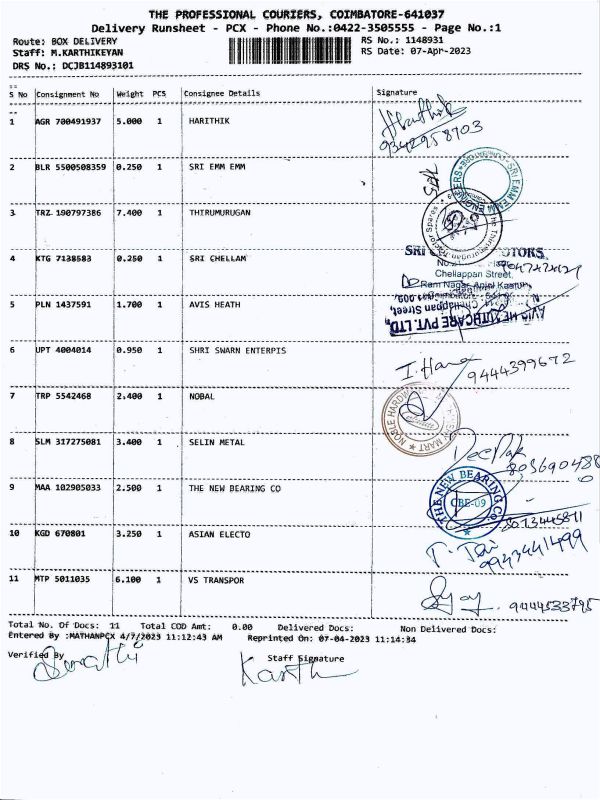 THE PROFESSIONAL COURIERS, COIMBATORE-641037
Delivery Runsheet - PCX - Phone No.:0422-3505555 - Page No.:1
Route: BOX DELIVERY RS No.: 1148931
Staff: M.KARTHIKEYAN RS Date: 07-Apr-2023
DRS No.: DCJB114893101
S No Consignment No Weight PCS Consignee Details Signature
1 AGR 700491937 5.000 1 HARITHIK Harithik
9342958703
2 BLR 5500508359 0.250 1 SRI EMM EMM
3 TRZ 190797386 7.400 1 THIRUMURUGAN
4 KTG 7138583 0.250 1 SRI CHELLAM
Chellappan Street,
Ram Nagar,
5 PLN 1437591 1.700 1 AVIS HEATH
AVIS HEALTHCARE PVT. LTD.,
Chellappan Street,
6 UPT 4004014 0.950 1 SHRI SWARN ENTERPIS
9444399672
7 TRP 5542468 2.400 1 NOBAL
8 SLM 317275081 3.400 1 SELIN METAL Deepak
9 MAA 102905033 2.500 1 THE NEW BEARING CO
THE NEW BEARING Co.
CBE-09
10 KGD 670801 3.250 1 ASIAN ELECTO
11 MTP 5011035 6.100 1 VS TRANSPOR
9444533795
Total No. Of Docs: 11 Total COD Amt: 0.00 Delivered Docs: Non Delivered Docs:
Entered By :MATHANPCX 4/7/2023 11:12:43 AM Reprinted On: 07-04-2023 11:14:34
Verified By Staff Signature
Karth